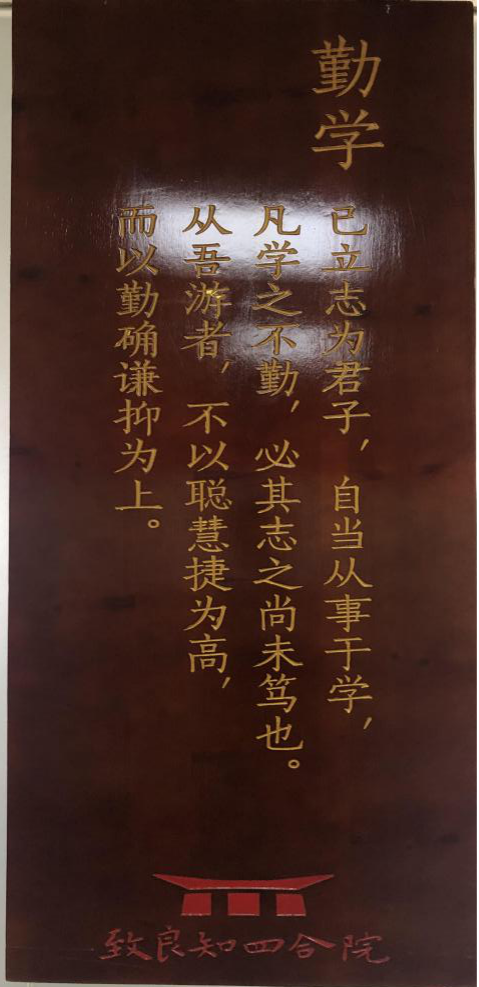 勤学
已立志为君子，自当从事于学，
凡学之不勤，必其志之尚未笃也。
从吾游者，不以聪慧捷为高，
而以勤确谦抑为上。
致良知四合院